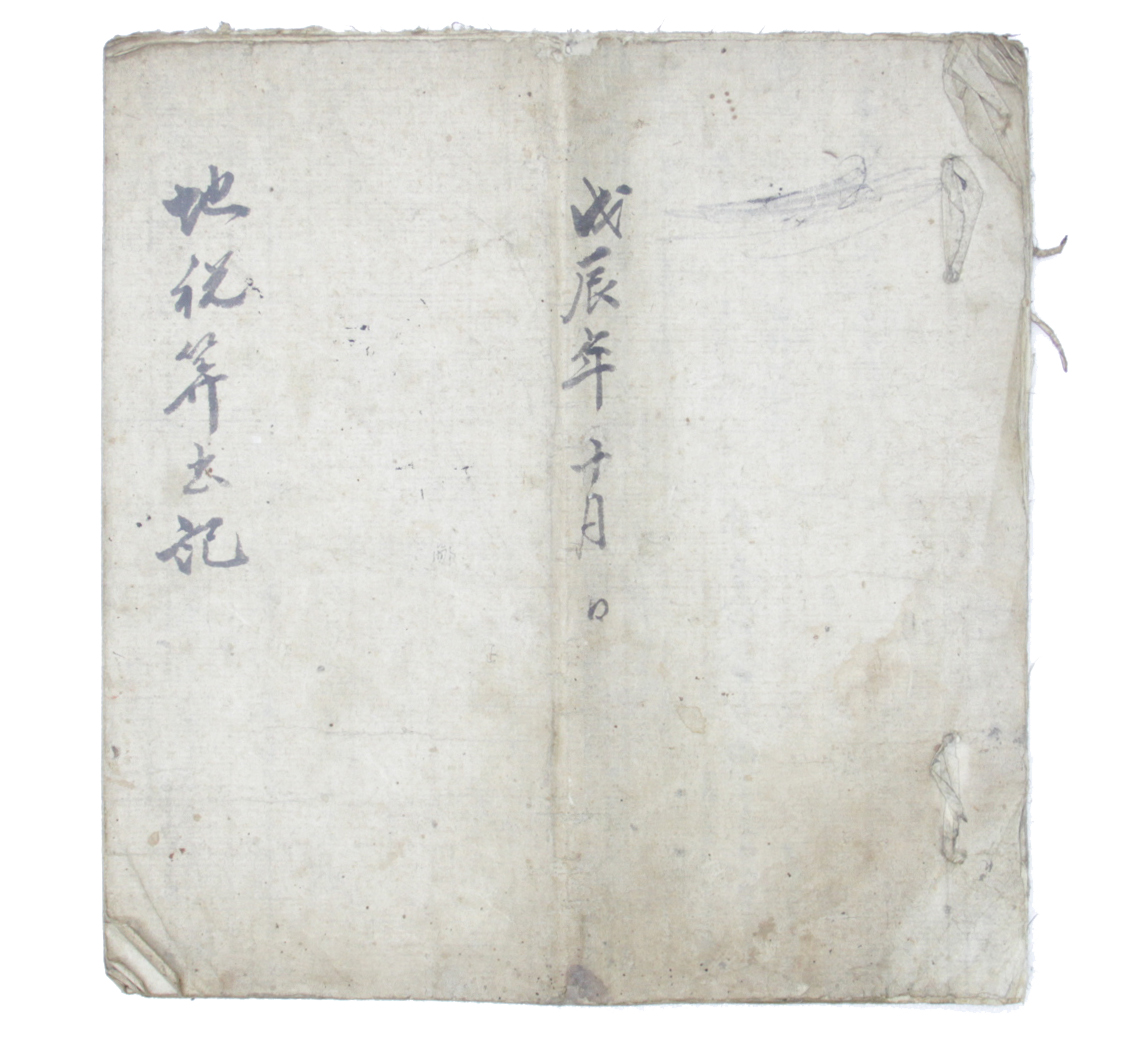 戊辰年 十月 日
地稅算出記